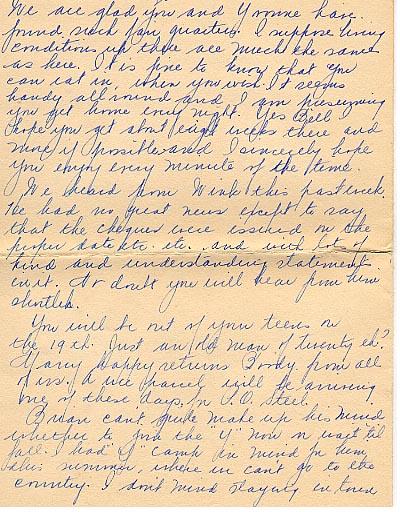 We are glad you and Yvonne have
found such fair quarters. I suppose living
conditions up there are much the same
as here. It is fine to know that you
can eat in, when you wish. It seems
handy all round and I am presuming
you get home every night. Yes Bill I
hope you get about eight weeks there and
more if possible and I sincerely hope
you enjoy every minute of the time.
We heard from Wink this past week.
He had no great news except to say
that the cheques were issued on the
proper date etc. etc. and with lot of
kind and understanding statements
in it. No doubt you will hear from him
shortly.
You will be out of your teens on
the 19th. Just an old man of twenty eh?
Many happy returns Buddy from all
of us. A wee parcel will be arriving
one of these days, for P.O. Steel.
Brian can't quite make up his mind
whether to join the "Y" now or wait til
fall. I had "Y" Camp in mind for him
this summer, where we can't go to the
country. I don't mind staying in town